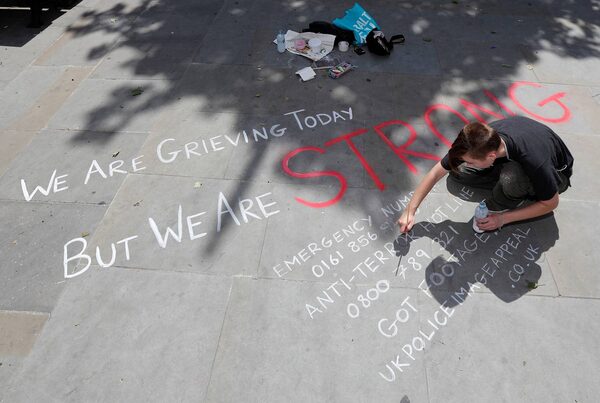 We Are Grieving Today
But We Are STRONG
EMERGENCY
0161 856
ANTI-TERROR HOTLINE
0800 789
GOT FOOTAGE
UKPOLICEIMAGEAPPEAL
.CO.UK